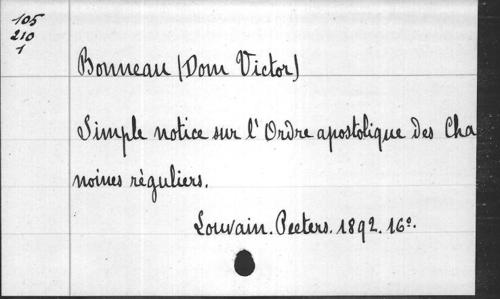 105
210
1
Bonneau (Dom Victor)
Simple notice sur l'Ordre apostolique des Cha
noines réguliers.
Louvain. Peeters. 1892. 16º.